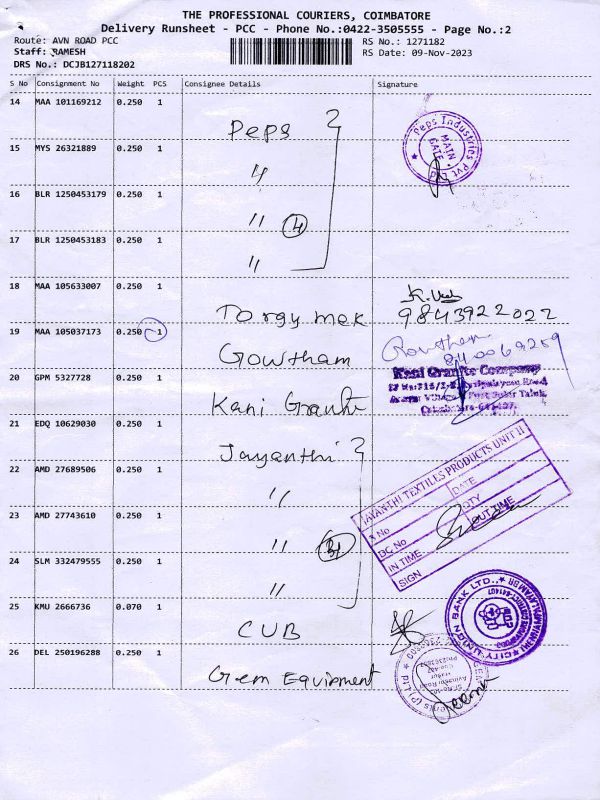 THE PROFESSIONAL COURIERS, COIMBATORE
Delivery Runsheet - PCC - Phone No.:0422-3505555 - Page No.:2
Route: AVN ROAD PCC
RS No.: 1271182
Staff: RAMESH
RS Date: 09-Nov-2023
DRS No.: DCJB127118202
S No Consignment No Weight PCS Consignee Details Signature
14 MAA 101169212 0.250 1
Peps
Peps Industries Pvt Ltd
MAIN GATE
15 MYS 26321889 0.250 1
"
16 BLR 1250453179 0.250 1
" 4
17 BLR 1250453183 0.250 1
"
18 MAA 105633007 0.250 1
Torgy mek 9843922022
19 MAA 105037173 0.250 1
Gowtham
20 GPM 5327728 0.250 1
Kani Granite Company
21 EDQ 10629030 0.250 1
Jayanthi
JAYANTHI TEXTILES PRODUCTS UNIT II
S No DATE
DC No QTY
IN TIME OUT TIME
SIGN
22 AMD 27689506 0.250 1
"
23 AMD 27743610 0.250 1
"
24 SLM 332479555 0.250 1
"
25 KMU 2666736 0.070 1
CUB
CITY UNION BANK LTD.,
26 DEL 250196288 0.250 1
Gem Equipment